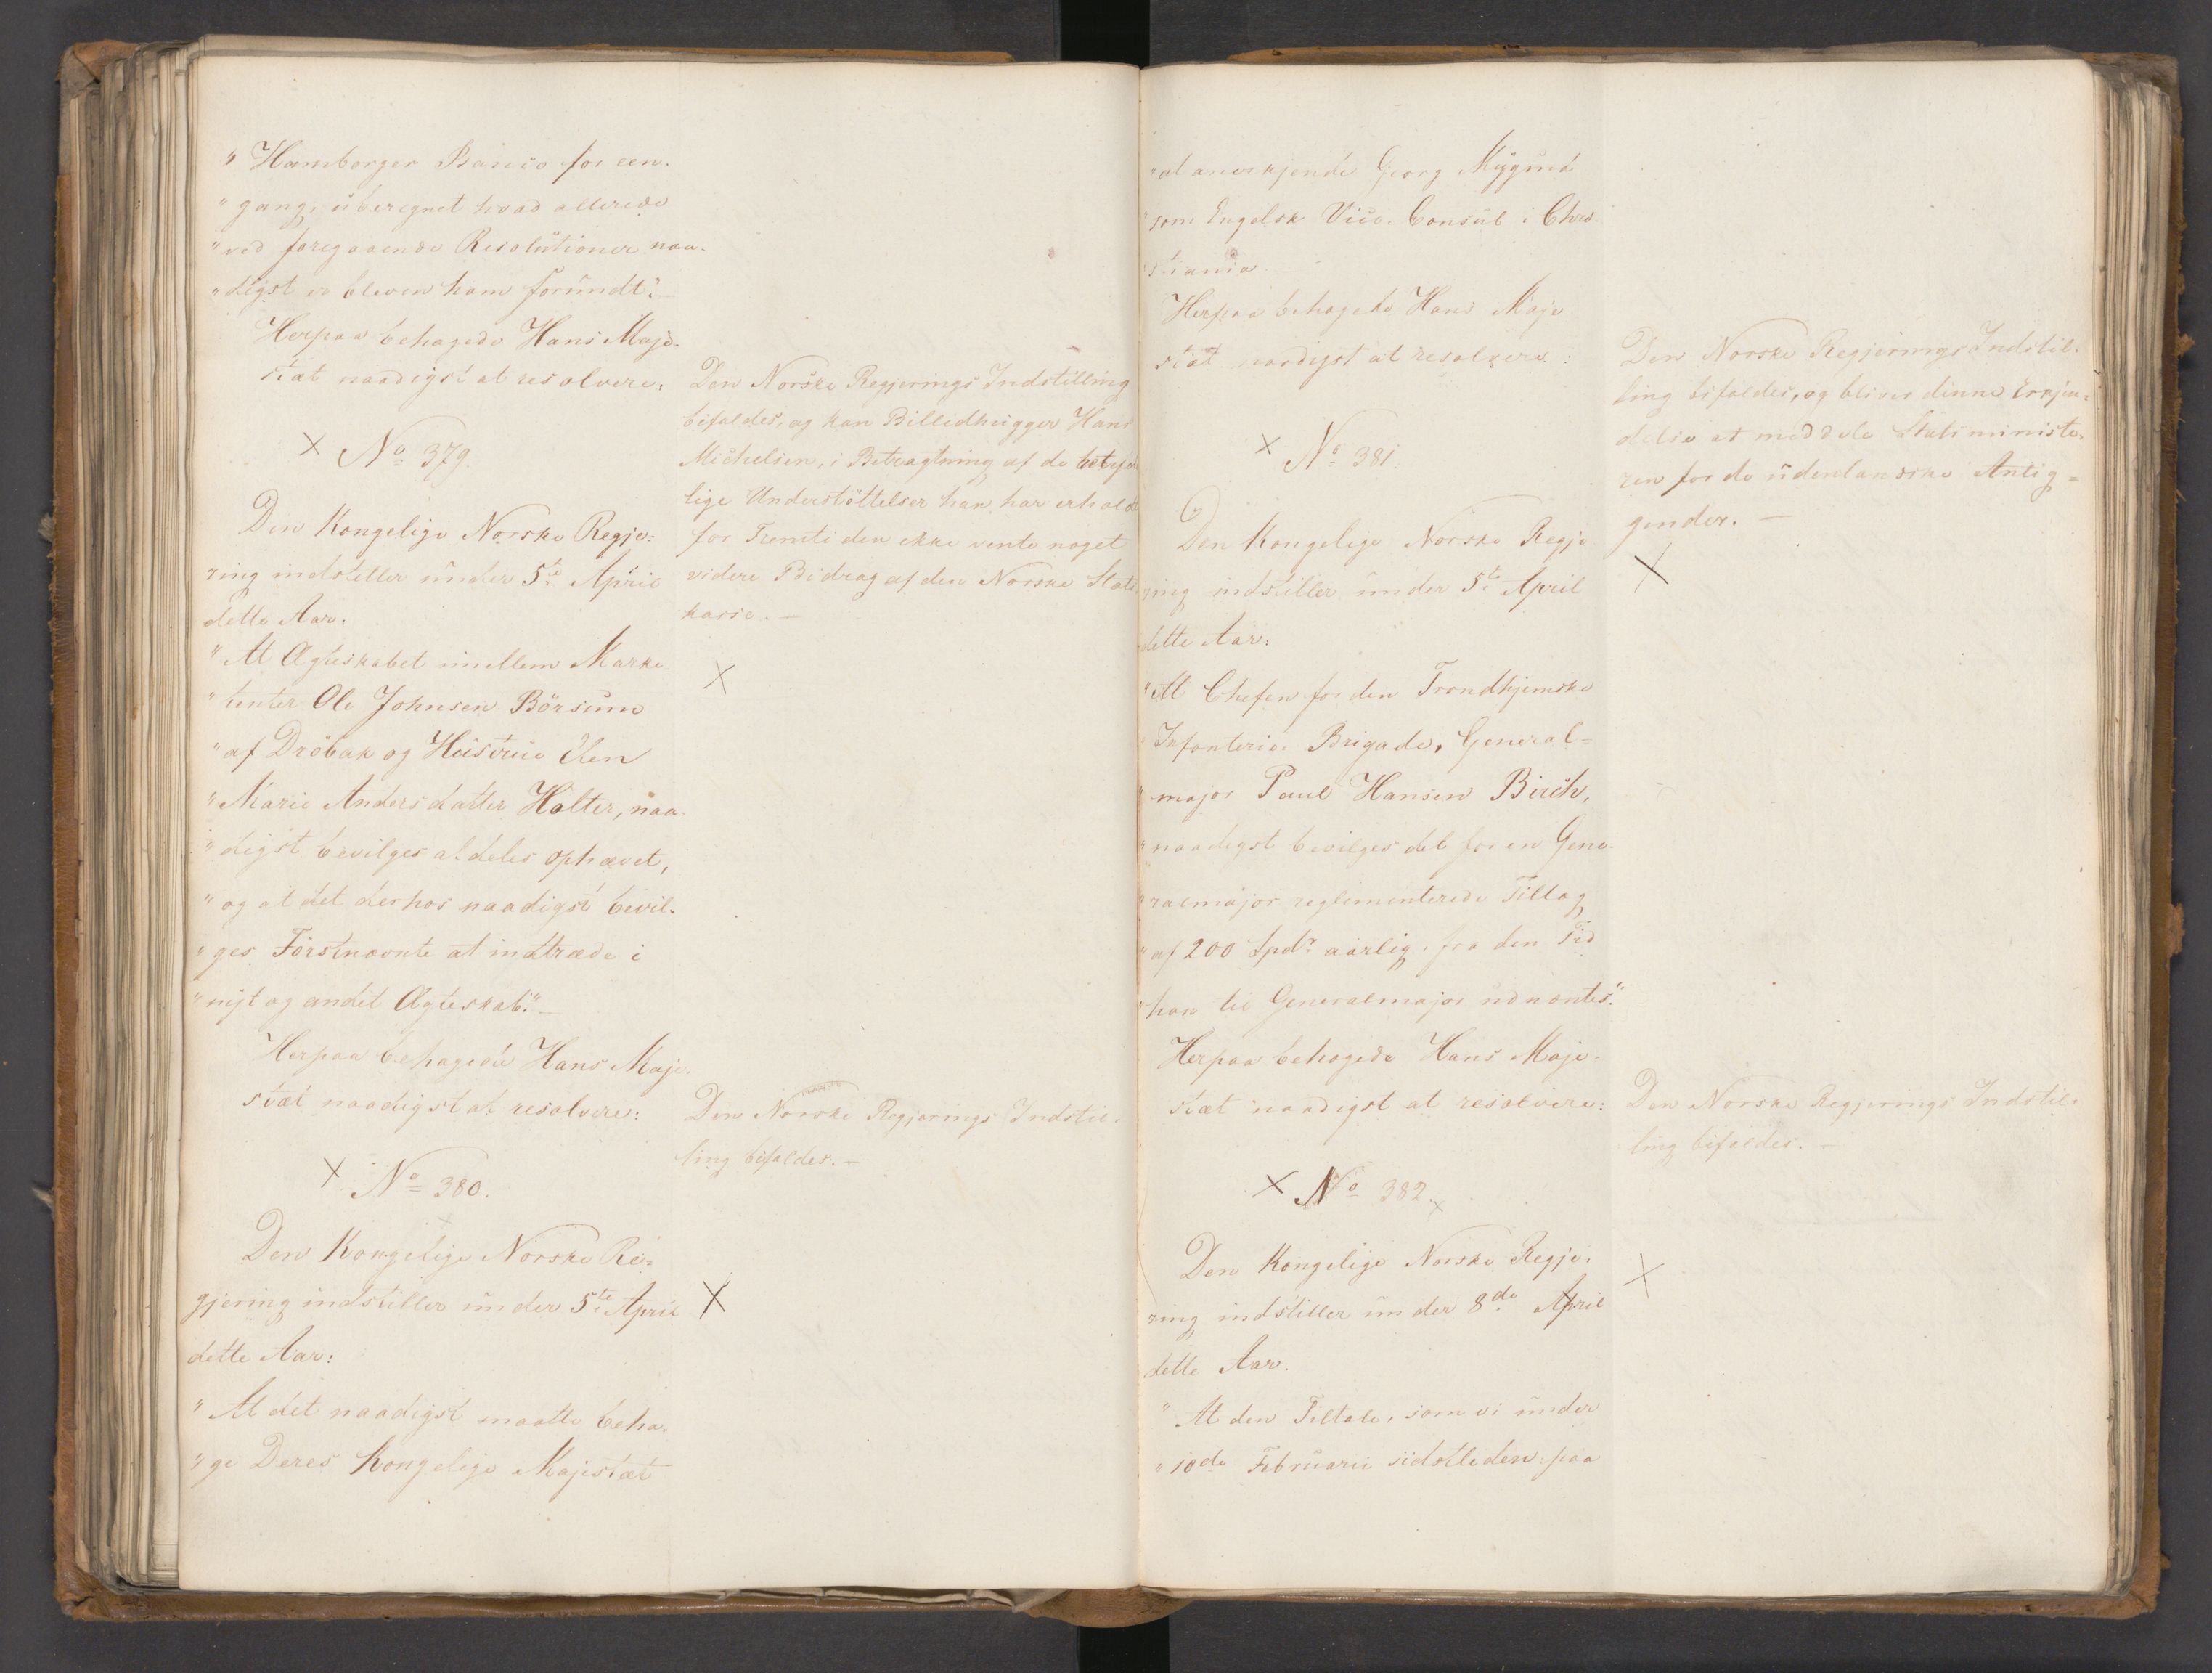 " Hamborger Banco for een-
" gang, uberegnet hvad allerede
" ved foregaaende Resolutioner naa-
" digst er bleven ham forundt."
Herpaa behagede Hans Maje-
stæt naadigst at resolvere:
Den Norske Regjerings Indstilling
bifaldes, og kan Billedhugger Hans
Michelsen, i Betragtning af de betyde
lige Understöttelser han har erholdt
for Fremtiden ikke vente noget
videre Bidrag af den Norske Stats
kasse. —
× No 379.
Den Kongelige Norske Regje-
ring indstiller under 5te April
dette Aar:
×
" At Ægteskabet imellem Marke
" tenter Ole Johnsen Börsum
" af Dröbak og Hustrue Elen
" Marie Andersdatter Holter, naa-
" digst bevilges aldeles ophævet,
" og at det derhos naadigst bevil-
" ges Förstnævnte at indtræde i
" nyt og andet Ægteskab." —
Herpaa behagede Hans Maje-
stæt naadigst at resolvere:
Den Norske Regjerings Indstil-
ling bifaldes. —
× No 380.
Den Kongelige Norske Re-
gjering indstiller under 5te April
dette Aar:
×
" At det naadigst maatte beha-
" ge Deres Kongelige Majestæt
" at anerkjende Georg Mygind
" som Engelsk Vice-Consul i Chri-
" stiania.
Herpaa behagede Hans Maje
stæt naadigst at resolvere:
Den Norske Regjerings Indstil-
ling bifaldes, og bliver denne Erkjen-
delse at meddele Statsministe-
ren for de udenlandske Anlig-
gender. —
× No 381.
Den Kongelige Norske Regje
ring indstiller under 5te April
dette Aar:
×
" At Chefen for den Trondhjemske
" Infanterie-Brigade, General-
" major Paul Hansen Birch,
" naadigst bevilges det for en Gene-
" ralmajor reglementerede Tillæg
" af 200 Spdr aarlig, fra den Tid
" han til Generalmajor udnævntes."
Herpaa behagede Hans Maje-
stæt naadigst at resolvere:
Den Norske Regjerings Indstil-
ling bifaldes. —
× No 382. ×
Den Kongelige Norske Regje-
ring indstiller under 8de April
dette Aar.
×
" At den Tiltale, som vi under
" 10de Februarii sidstleden paa